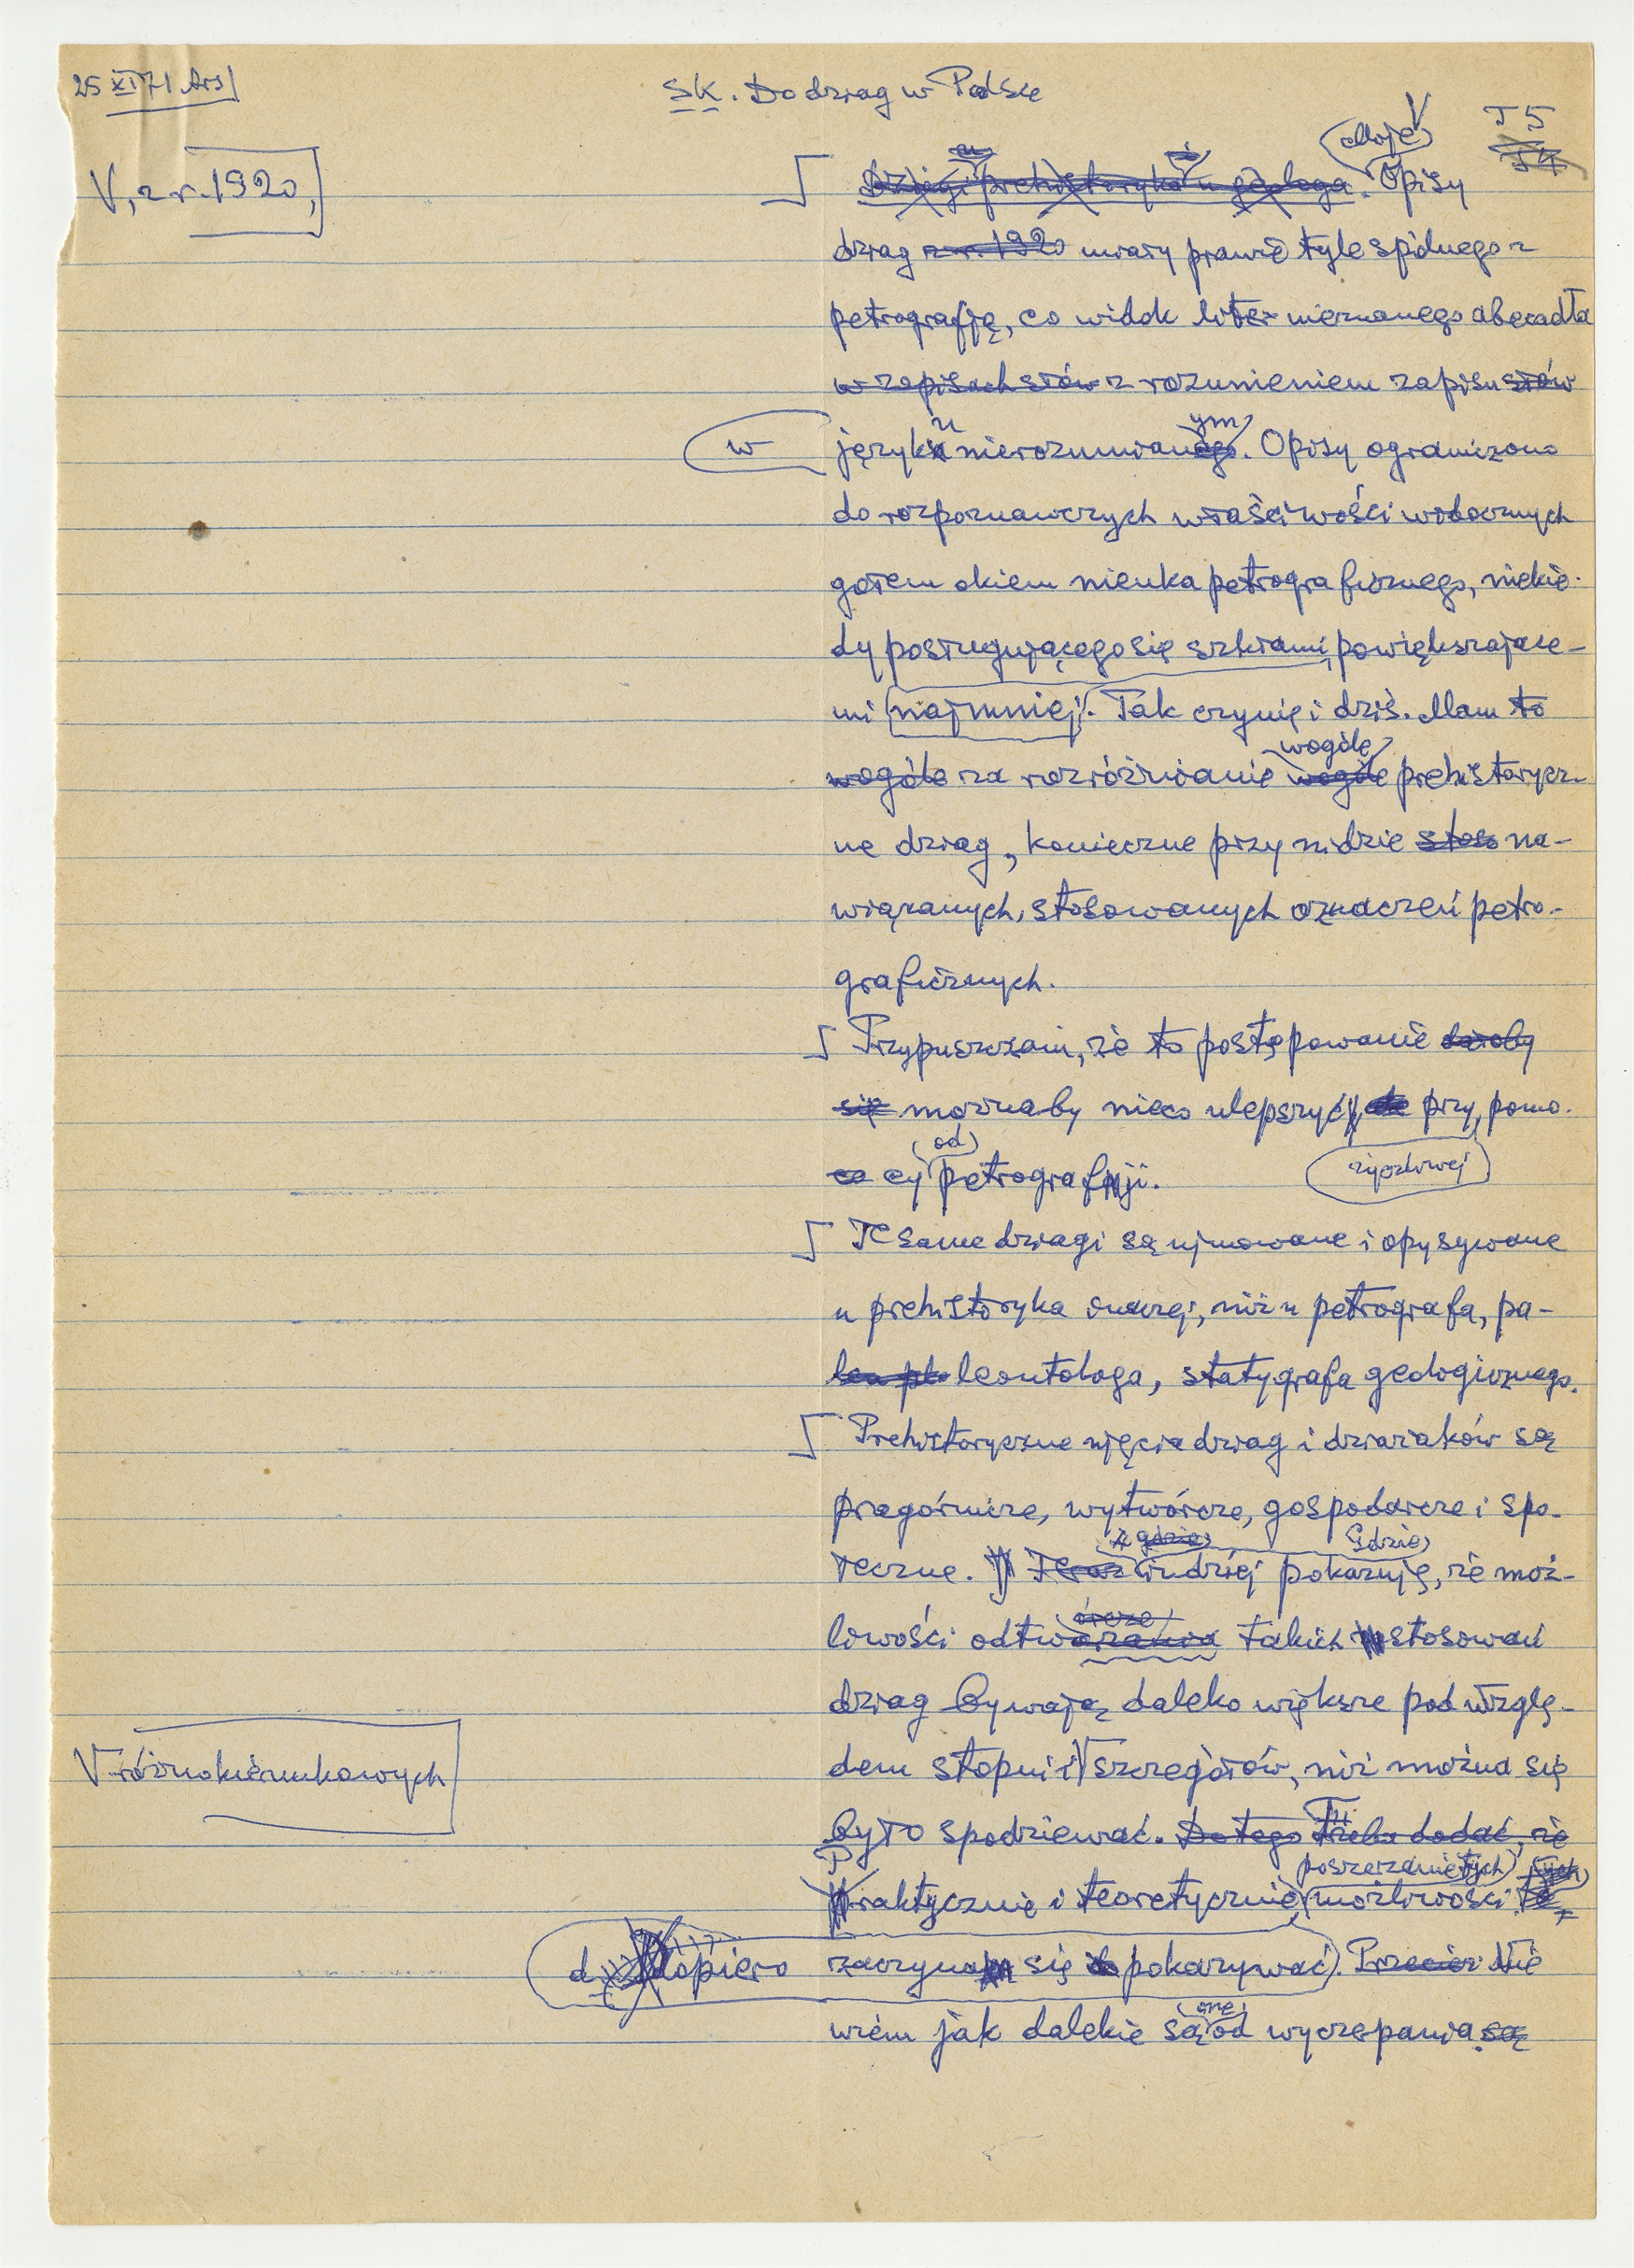 25 XI 71 Ars
SK. Do dziag w Polsce
T 5
T4
V, z r. 1920,
Dziagi prehistoryka u geologa. Moje V Opisy
dziag z r. 1920 miały prawie tyle spólnego z
petrografją, co widok liter nieznanego abecadła
w zapisach słów z rozumieniem zapisu słów
w języku nierozumianym. Opisy ograniczono
do rozpoznawczych właściwości widocznych
gołem okiem nieuka petrograficznego, niekie-
dy posługującego się szkłami powiększające-
mi najmniej. Tak czynię i dziś. Mam to
wogóle za rozróżnianie wogóle wogóle prehistorycz-
ne dziag, konieczne przy nidzie stoso na-
wiązanych, stosowanych oznaczeń petro-
graficznych.
Przypuszczam, że to postępowanie dałoby
się możnaby nieco ulepszyć, przy pomo-
co cy od petrografji. życzliwej
Te same dziagi są ujmowane i opysywane
u prehistoryka inaczej, niż u petrografa, pa-
leontologa, statygrafa geologicznego.
Prehistoryczne ujęcia dziag i dziaziaków są
pragórnicze, wytwórcze, gospodarcze i spo-
łeczne. Teraz gdzie indziej gdzie pokazuję, że moż-
liwości odtwarzania takich stosowań
dziag bywają daleko większe pod wzglę-
dem stopni i V szczegółów, niż można się
V różnokierunkowych
było spodziewać. Do tego trzeba dodać, że
Praktycznie i teoretycznie poszerzanie tych możliwości
dopiero zaczyna się pokazywać. Przecież Nie
wiem jak dalekie są one od wyczepania są